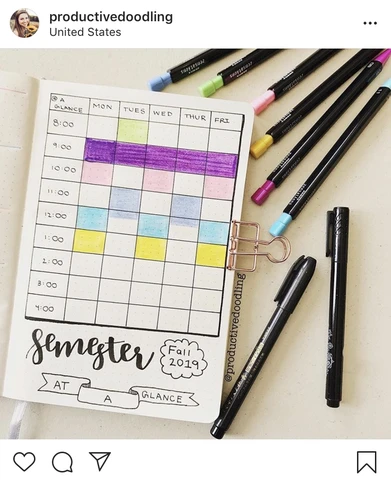 productivedoodling
United States
@ A GLANCE MON TUES WED THUR FRI
8:00
9:00
10:00
11:00
12:00
1:00
2:00
3:00
4:00
semester
Fall
2019
AT A GLANCE
@productivedoodling